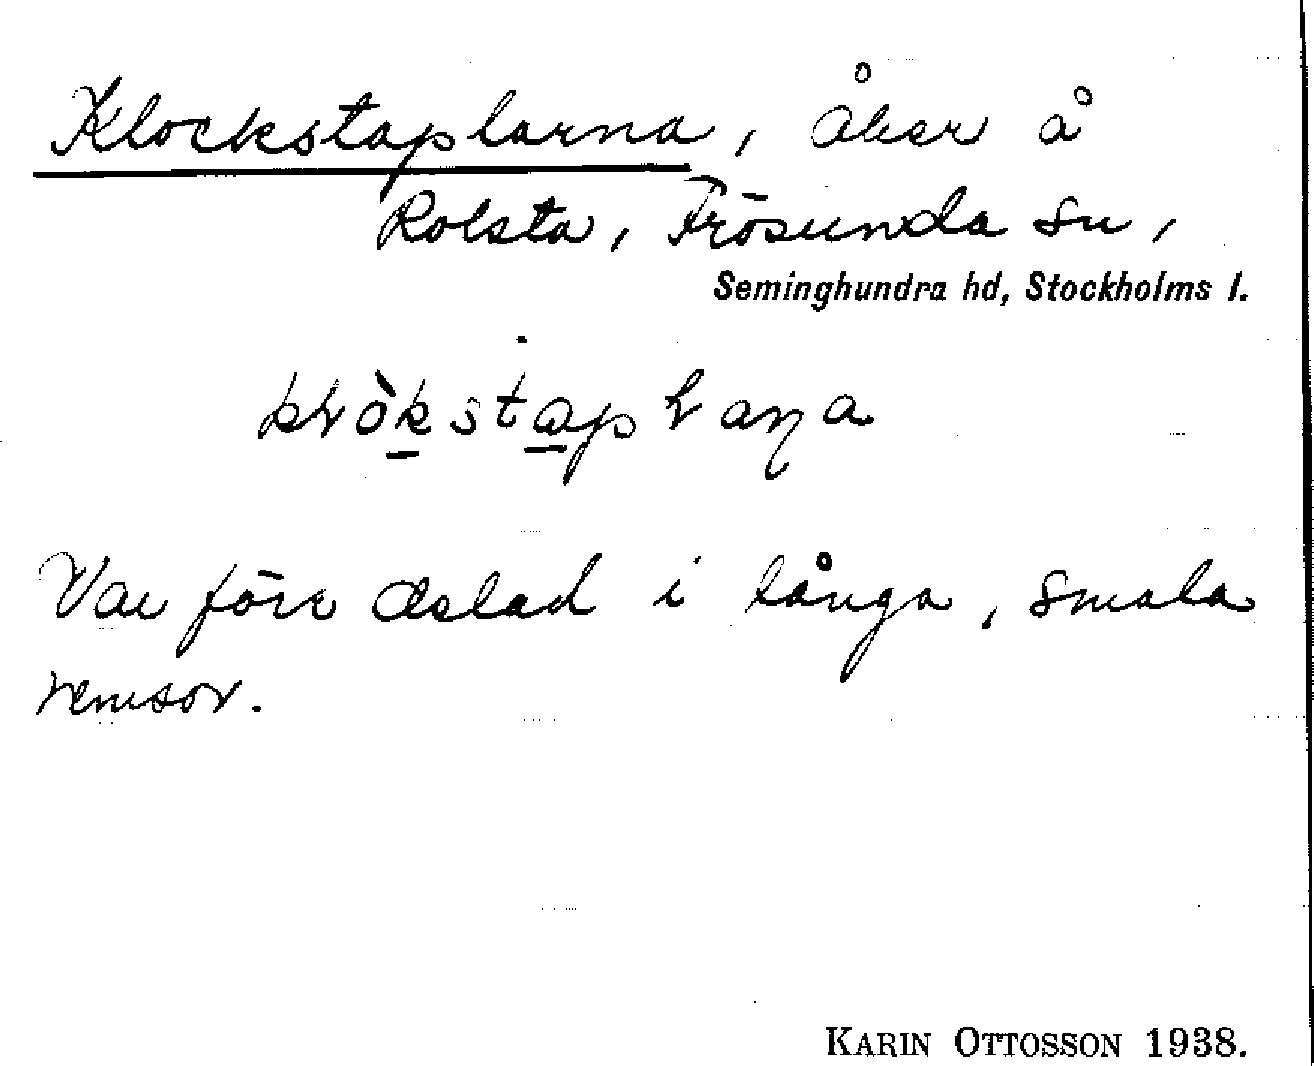 Klockstaplarna, åker å
Rolsta, Frösunda sn,
Seminghundra hd, Stockholms l.
Var förr delad i långa, smala
remsor.
KARIN OTTOSSON 1938.